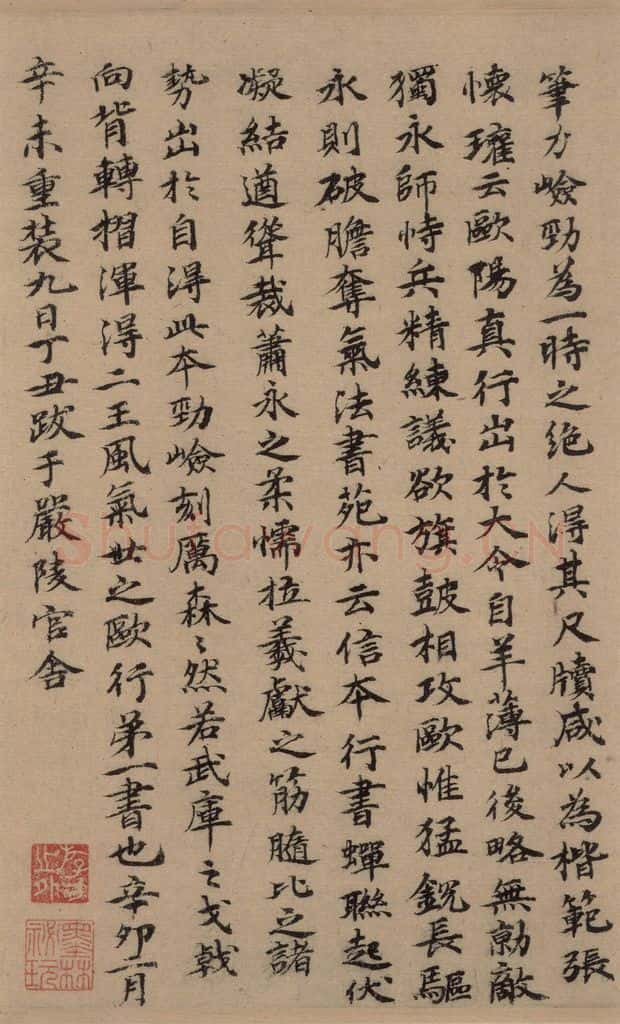 筆力嶮勁為一時之絕人得其尺牘咸以為楷範張
懷瓘云歐陽真行出於大令自羊薄已後略無勍敵
獨永師恃兵精練議欲旗鼓相攻歐惟猛銳長驅
永則破膽奪氣法書苑亦云信本行書蟬聯起伏
凝結遒聳裁蕭永之柔懦拉羲獻之筋髓比之諸
勢出於自得此本勁嶮刻厲森〻然若武庫之戈戟
向背轉摺渾得二王風氣世之歐行第一書也辛卯二月
辛未重裝九日丁丑跋于嚴陵官舍
shufawang.CN